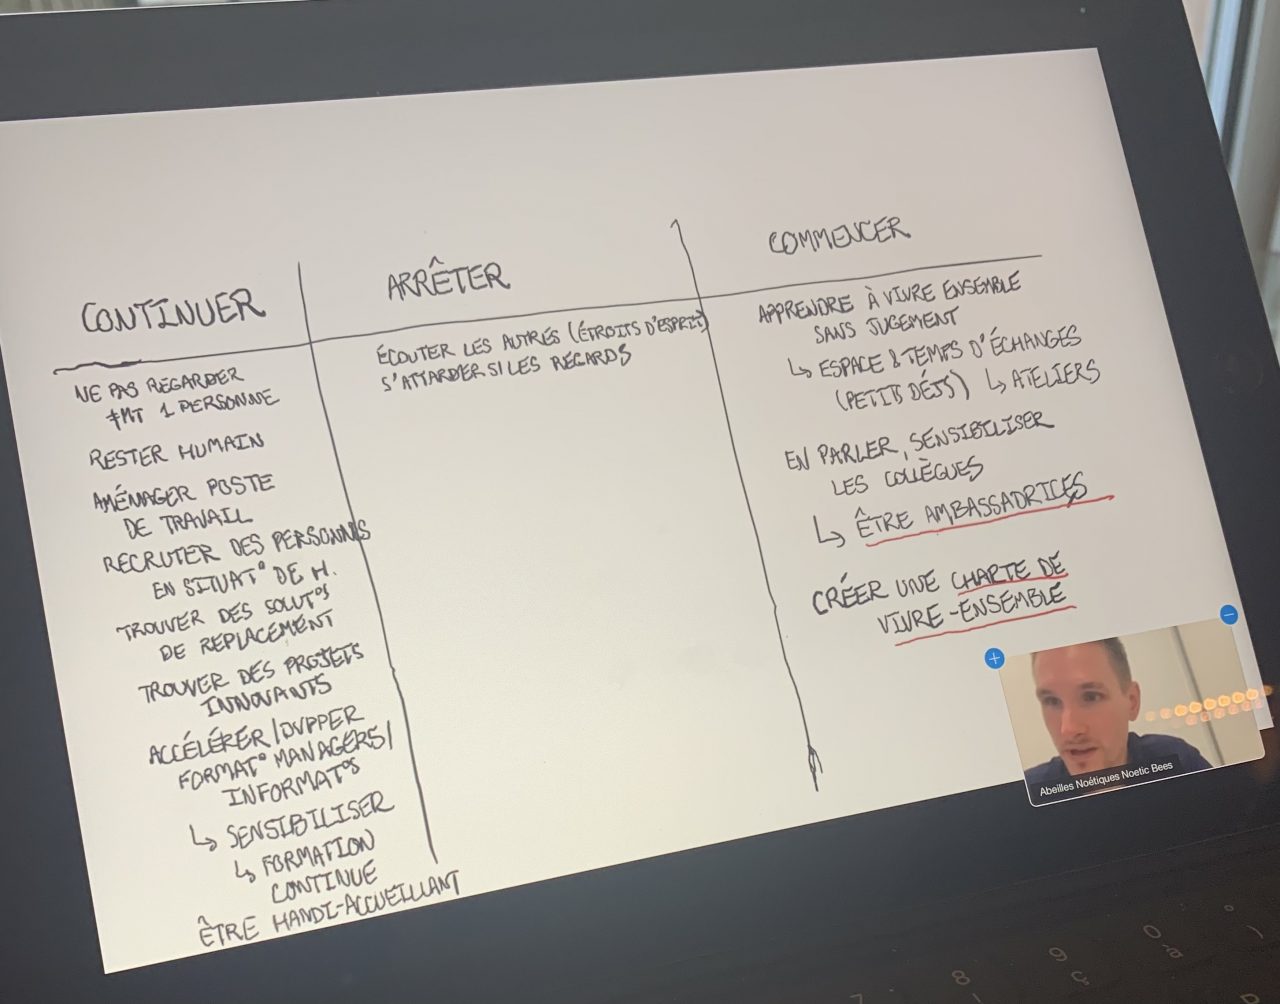 CONTINUER
NE PAS REGARDER
≠MT 1 PERSONNE
RESTER HUMAIN
AMÉNAGER POSTE
DE TRAVAIL
RECRUTER DES PERSONNES
EN SITUAT° DE H.
TROUVER DES SOLUT°S
DE REPLACEMENT
TROUVER DES PROJETS
INNOVANTS
ACCÉLÉRER/DVPPER
FORMAT° MANAGERS/
INFORMAT°S
↳ SENSIBILISER
↳ FORMATION
CONTINUE
ÊTRE HANDI-ACCUEILLANT
ARRÊTER
ÉCOUTER LES AUTRES (ÉTROITS D'ESPRIT)
S'ATTARDER SI LES REGARDS
COMMENCER
APPRENDRE À VIVRE ENSEMBLE
SANS JUGEMENT
↳ ESPACE & TEMPS D'ÉCHANGES
(PETITS DÉJS) ↳ ATELIERS
EN PARLER, SENSIBILISER
LES COLLÈGUES
↳ ÊTRE AMBASSADRICES
CRÉER UNE CHARTE DE
VIVRE-ENSEMBLE
Abeilles Noétiques Noetic Bees
7 8 9 0 °
ç à )